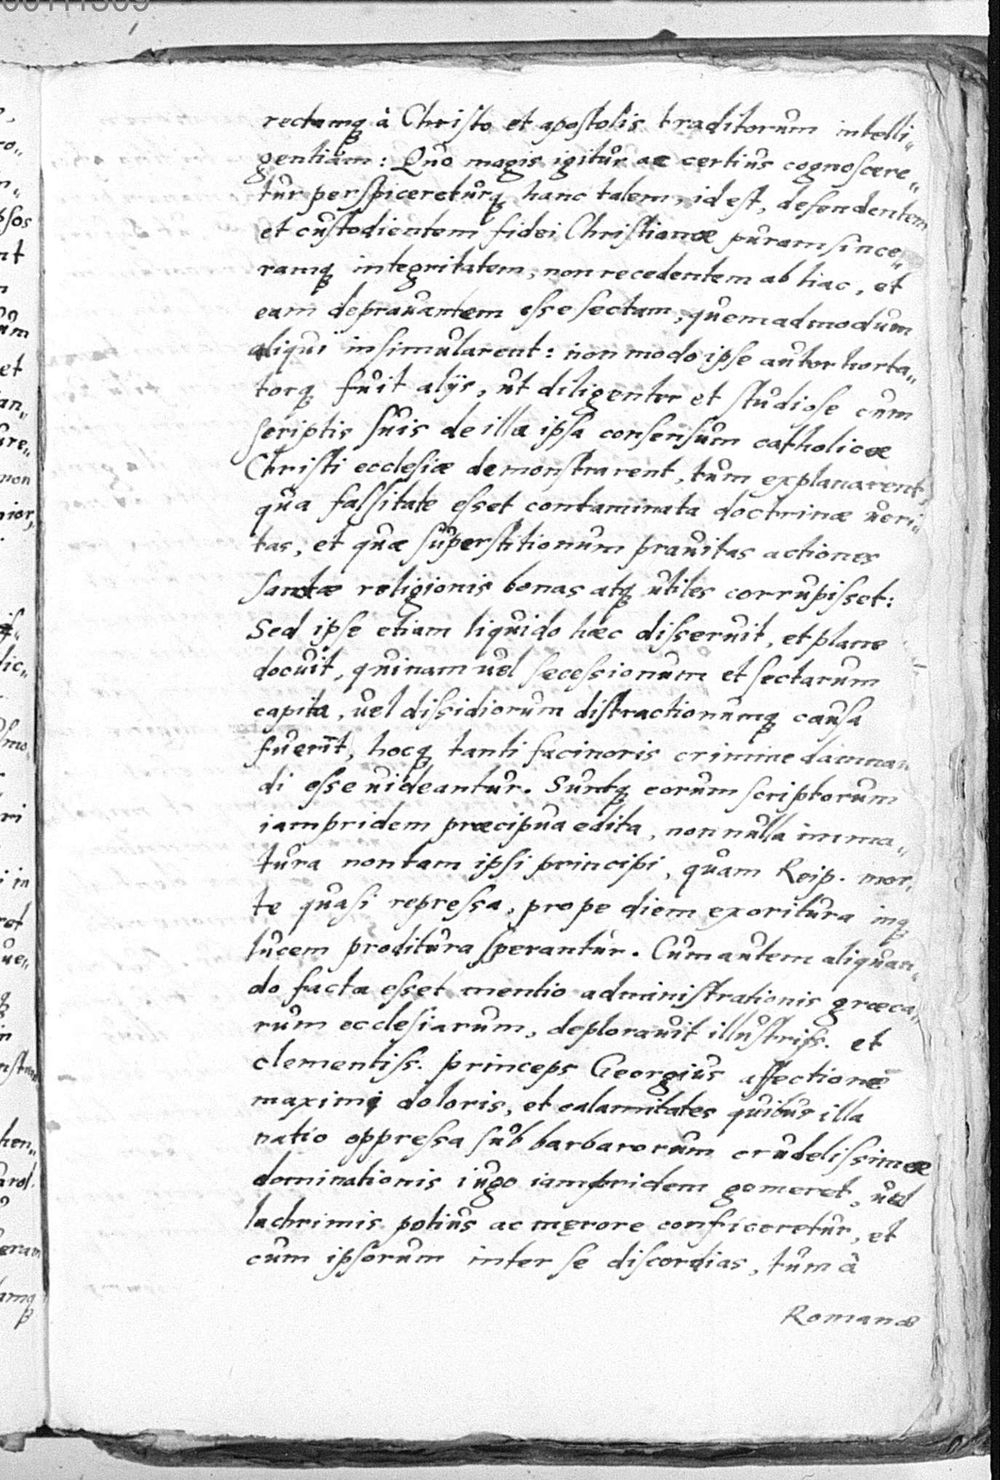 rectamq́ à Christo et apostolis traditorum intelli„
gentiam: Quo magis igitur ac certius cognoscere„
tur perspicereturq́ hanc talem, id est, defendentem
et custodientem fidei Christianæ puram since„
ramq́ integritatem, non recedentem ab hac, et
eam deprauantem esse sectam, quemadmodum
aliqui insimularent: non modo ipse autor horta„
torq́ fuit alijs, ut diligenter et studiose cum
scriptis suis de illa ipsa consensum catholicæ
Christi ecclesiæ demonstrarent, tum explanarent,
qua falsitate esset contaminata doctrinæ ueri„
tas, et quæ superstitionum prauitas actiones
sanctæ religionis bonas atq́ utiles corrupisset:
Sed ipse etiam liquido hæc disseruit, et plane
docuit, quinam uel secessionum et sectarum
capita, uel dissidiorum distractionumq́ causa
fuerīt, hocq́ tanti facinoris crimine damnan
di esse uideantur. Suntq́ eorum scriptorum
iampridem præcipua edita, nonnulla imma„
tura non tam ipsi principi, quam Reip. mor„
te quasi repressa, prope diem exoritura inq́
lucem proditura sperantur. Cum autem aliquan„
do facta esset mentio administrationis græca„
rum ecclesiarum, deplorauit illustriss. et
clementiss. princeps Georgius affectione
maximi doloris, et calamitates quibus illa
natio oppressa sub barbarorum crudelissimæ
dominationis iugo iampridem gemeret, uel
lachrimis potius ac męrore conficeretur, et
cum ipsorum inter se discordias, tum à
Romanæ